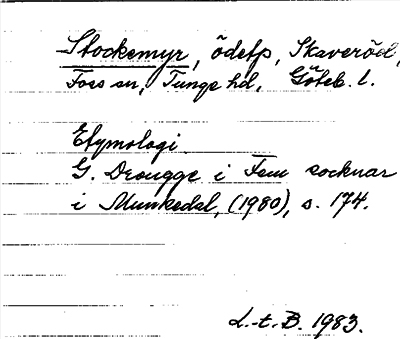 Stockemyr, ödetp, Skaveröd,
Foss sn, Tunge hd, Göteb. l.
Etymologi
G. Drougge i Fem socknar
i Munkedal, (1980), s. 174.
L.-t. B. 1983.